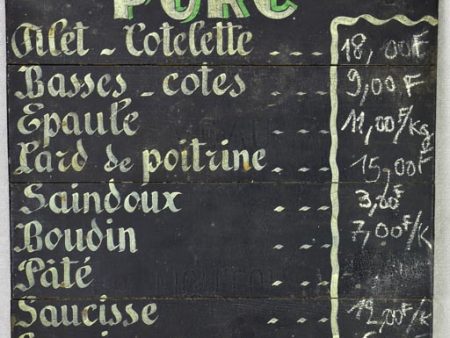 PORC
Filet - Cotelette - - - 18,00F
Basses - cotes - - - 9,00 F
Epaule - - - 11,00F/kg
Lard de poitrine - - - 15,00F
Saindoux - - - 3,00F
Boudin - - - 7,00F/k
Pâté
Saucisse - - - 12,00F/k